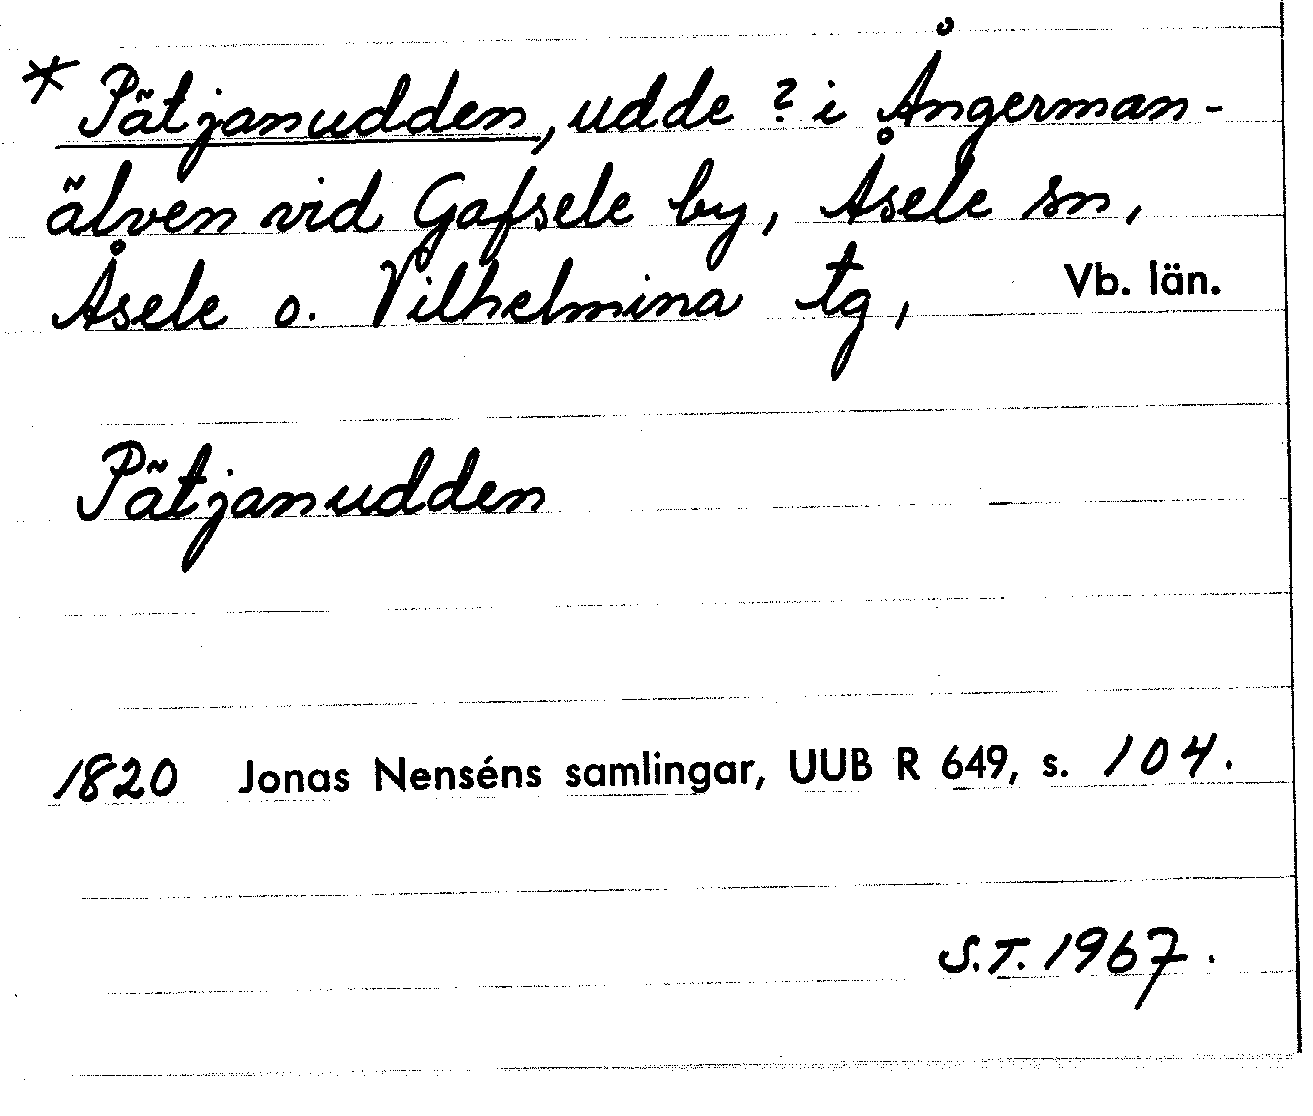 * Pätjanudden, udde ? i Ångerman-
älven vid Gafsele by, Åsele sn,
Åsele o. Vilhelmina tg, Vb. län.
Pätjanudden
1820 Jonas Nenséns samlingar, UUB R 649, s. 104.
S.T. 1967.